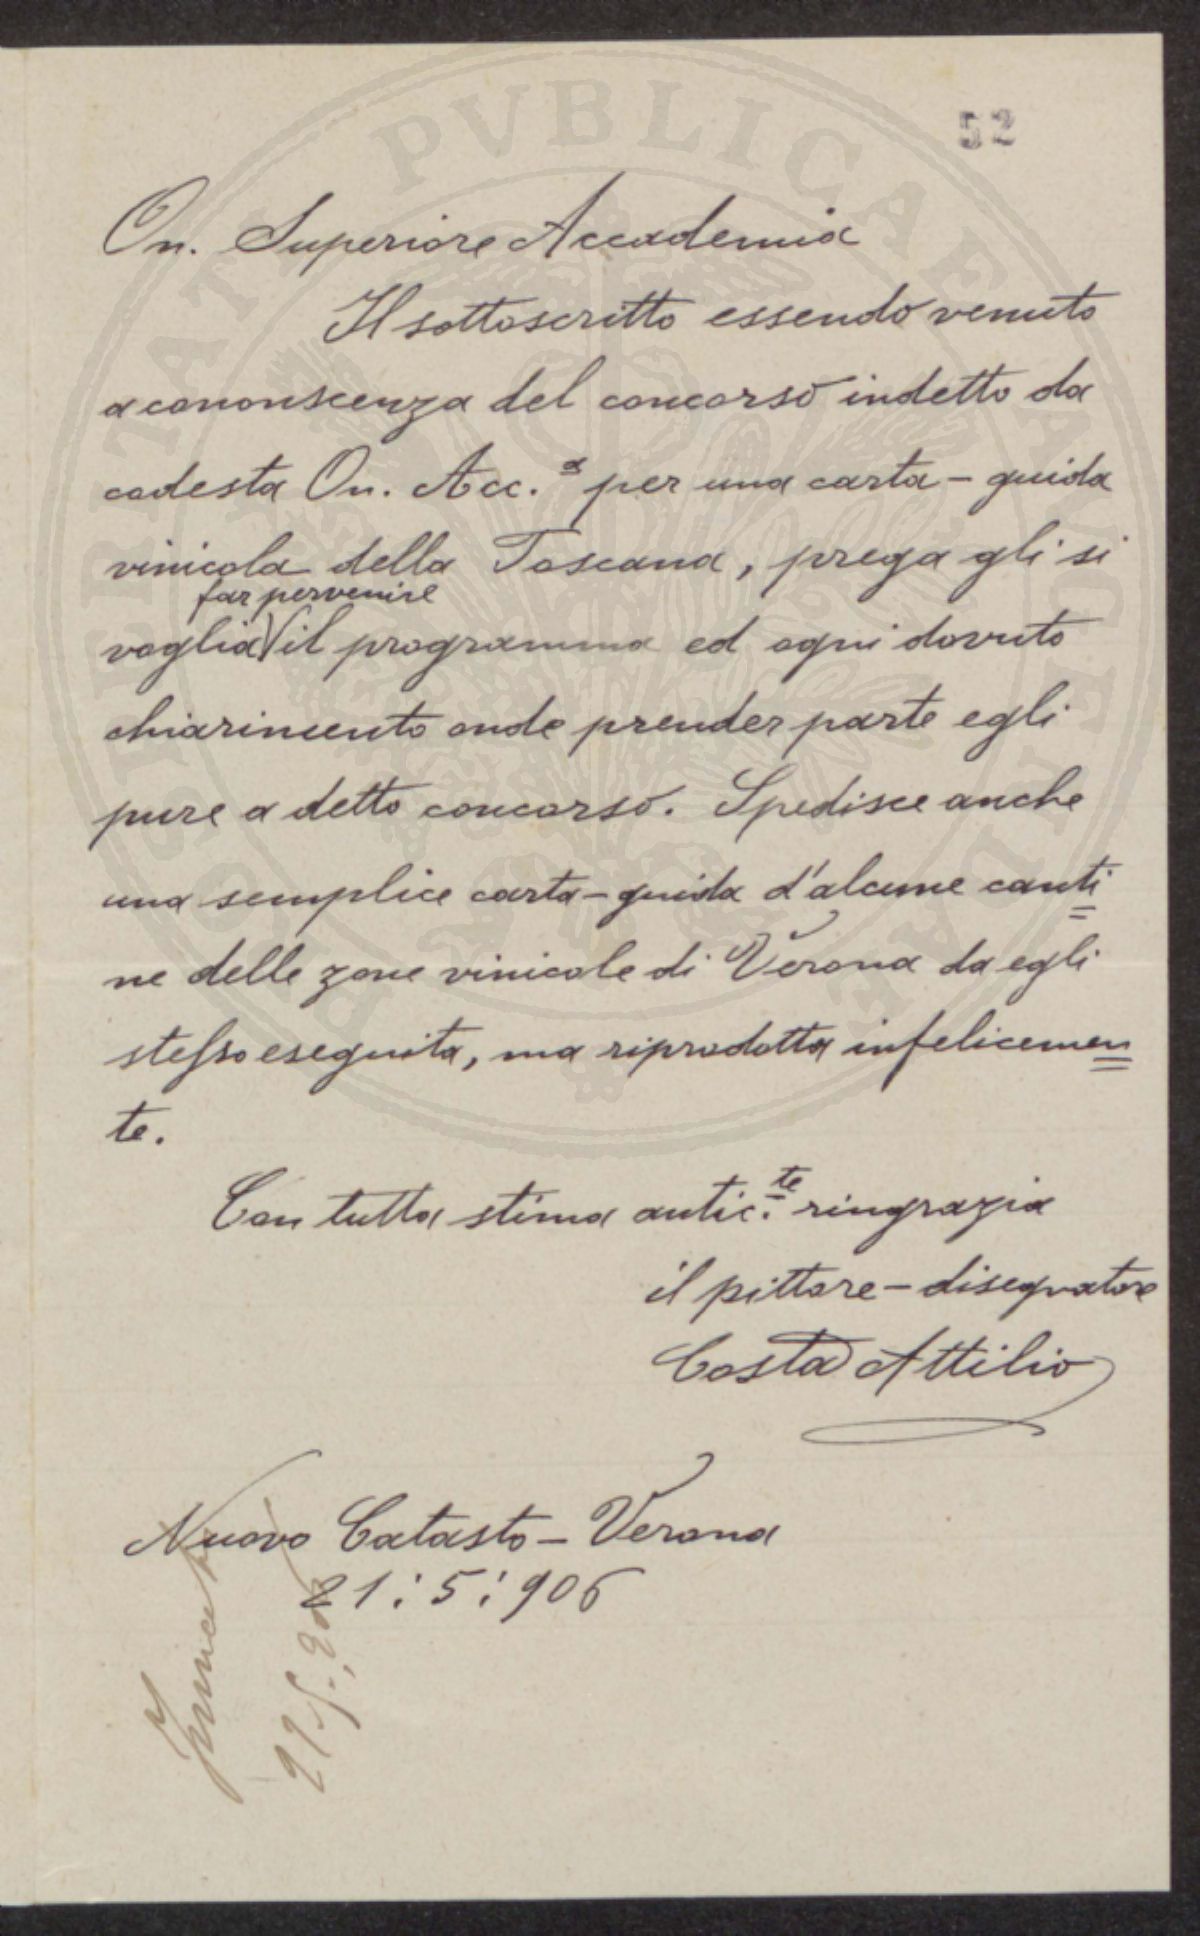 52
On. Superiore Accademia
Il sottoscritto essendo venuto
a cononscenza del concorso indetto da
codesta On. Acc.a per una carta-guida
vinicola della Toscana, prega gli si
far pervenire
voglia il programma ed ogni dovuto
chiarimento onde prender parte egli
pure a detto concorso. Spedisce anche
una semplice carta-guida d'alcune canti=
ne delle zone vinicole di Verona da egli
stesso eseguita, ma riprodotta infelicemen=
te.
Con tutta stima antic.te ringrazia
il pittore-disegnatore
Costa Attilio
Nuovo Catasto - Verona
21:5:906
PROSPERITATI PVBLICAE AVGENDAE